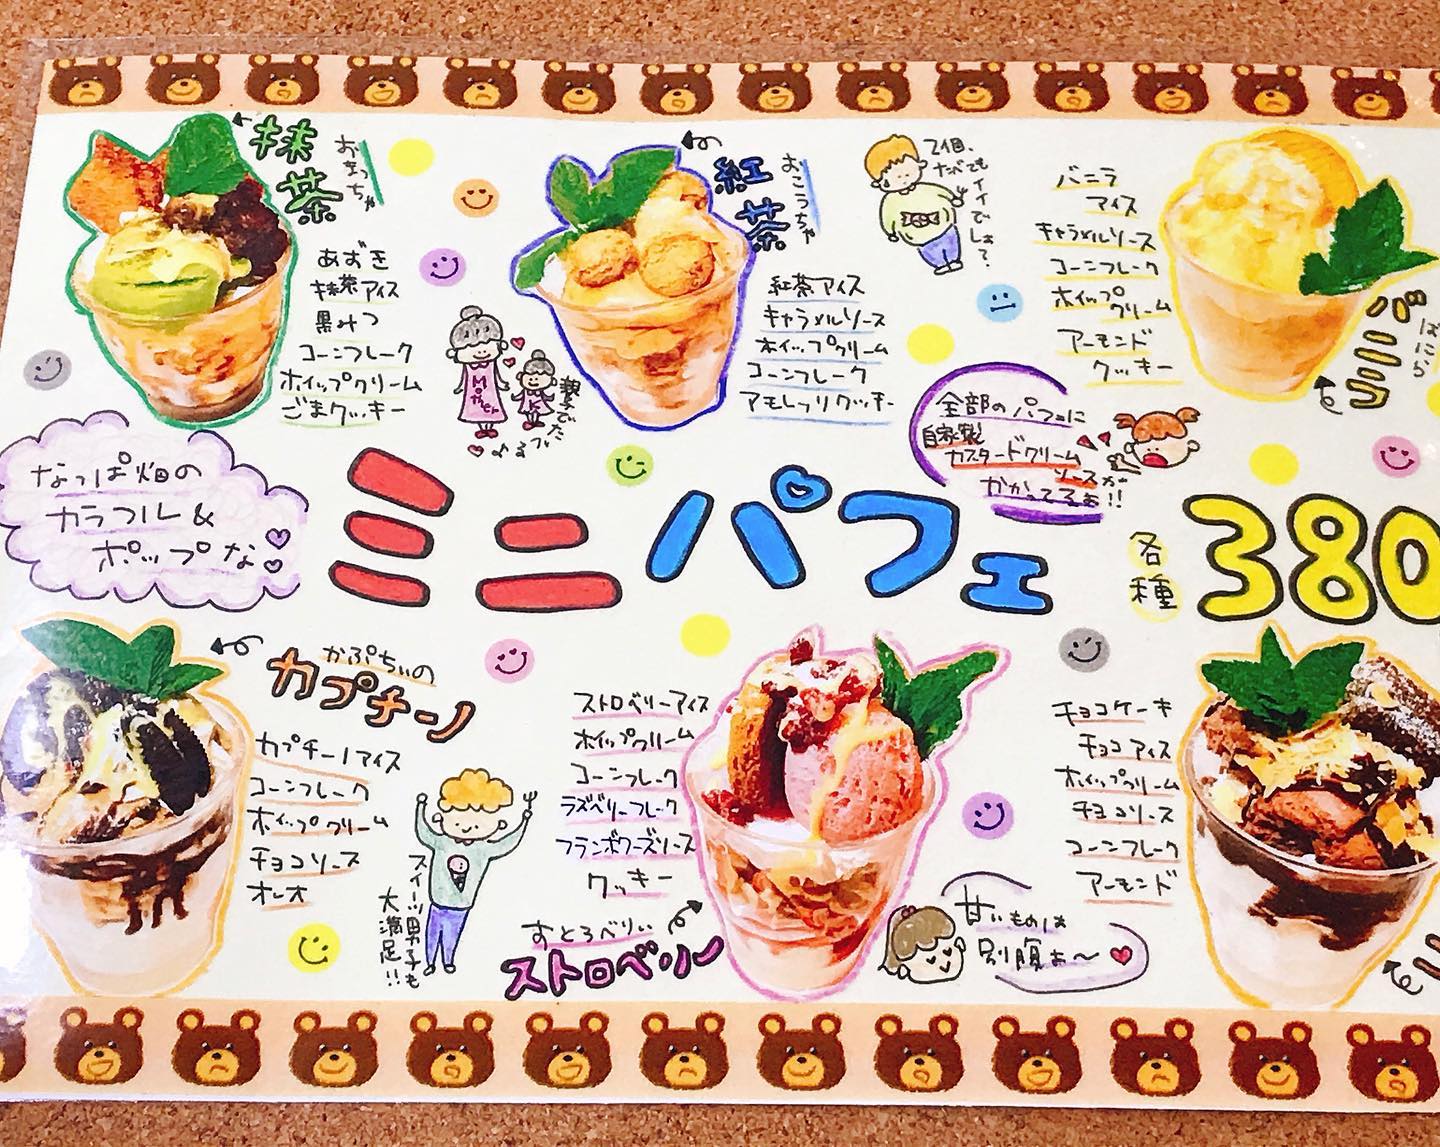 抹茶
おまっちゃ
あずき
抹茶アイス
黒みつ
コーンフレーク
ホイップクリーム
ごまクッキー
紅茶
おこうちゃ
紅茶アイス
キャラメルソース
ホイップクリーム
コーンフレーク
アーモンドクッキー
Mother
親子でた
2個、
食べても
イイでしょ?
バニラ
アイス
キャラメルソース
コーンフレーク
ホイップ
クリーム
アーモンド
クッキー
バニラ
ばにら
全部のパフェに
自家製
カスタードクリーム
ソースが
かかってるぉ!!
なっぱ畑の
カラフル&
ポップな
ミニパフェ
各種
380
かぷちぃの
カプチーノ
カプチーノアイス
コーンフレーク
ホイップクリーム
チョコソース
オレオ
スイーツ男子も
大満足!!
ストロベリーアイス
ホイップクリーム
コーンフレーク
ラズベリーフレーク
フランボワーズソース
クッキー
すとろべりぃ
ストロベリー
甘いものは
別腹ぉ〜
チョコケーキ
チョコアイス
ホイップクリーム
チョコソース
コーンフレーク
アーモンド